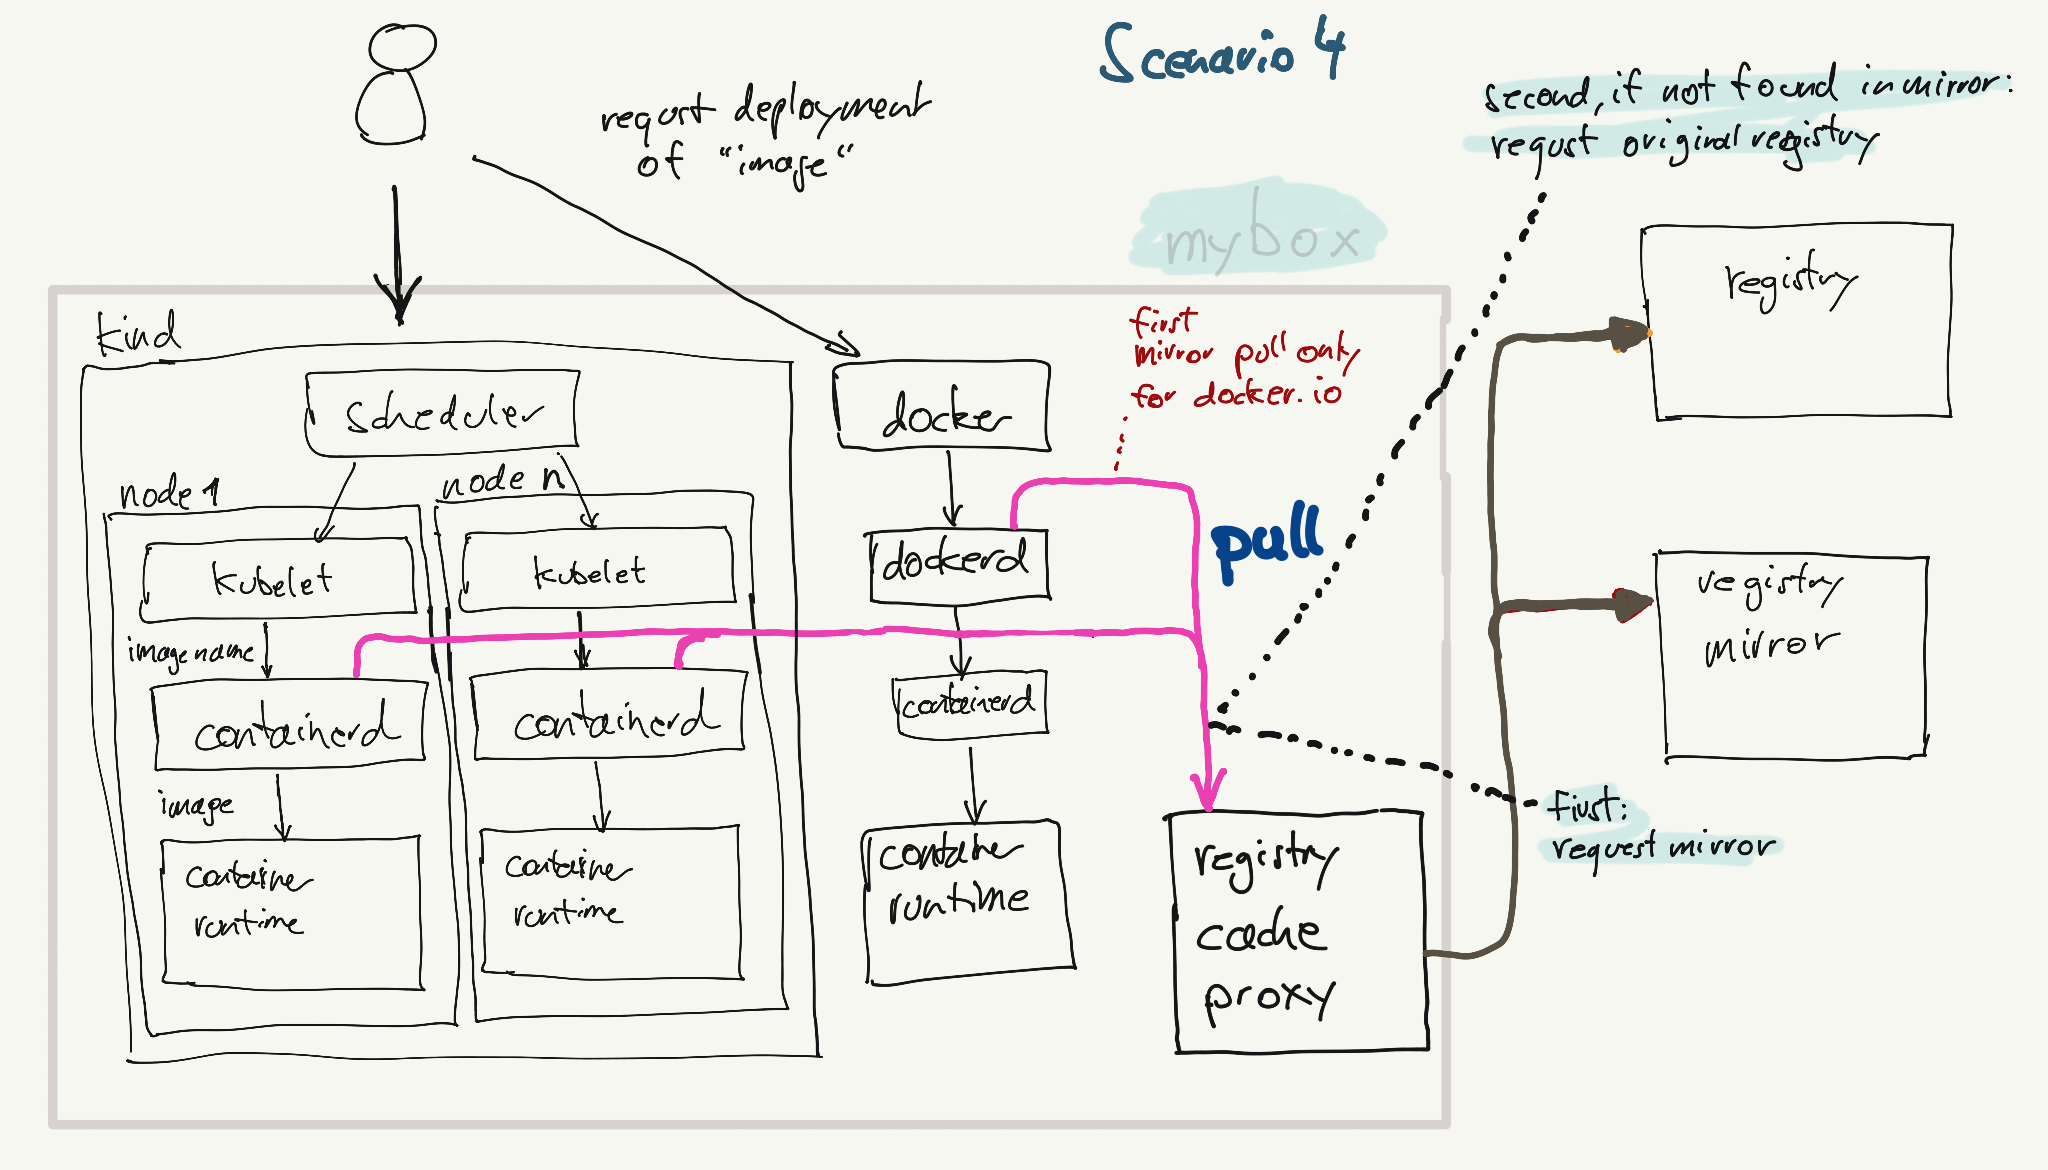 Scenario 4
requst deployment
of "image"
second, if not found in mirror:
requst original registry
mybox
registry
kind
first
mirror pull only
for docker.io
scheduler
docker
node 1
node n
pull
kubelet
kubelet
dockerd
registry
mirror
imagename
containerd
containerd
containerd
image
first:
request mirror
container
runtime
container
runtime
container
runtime
registry
cache
proxy